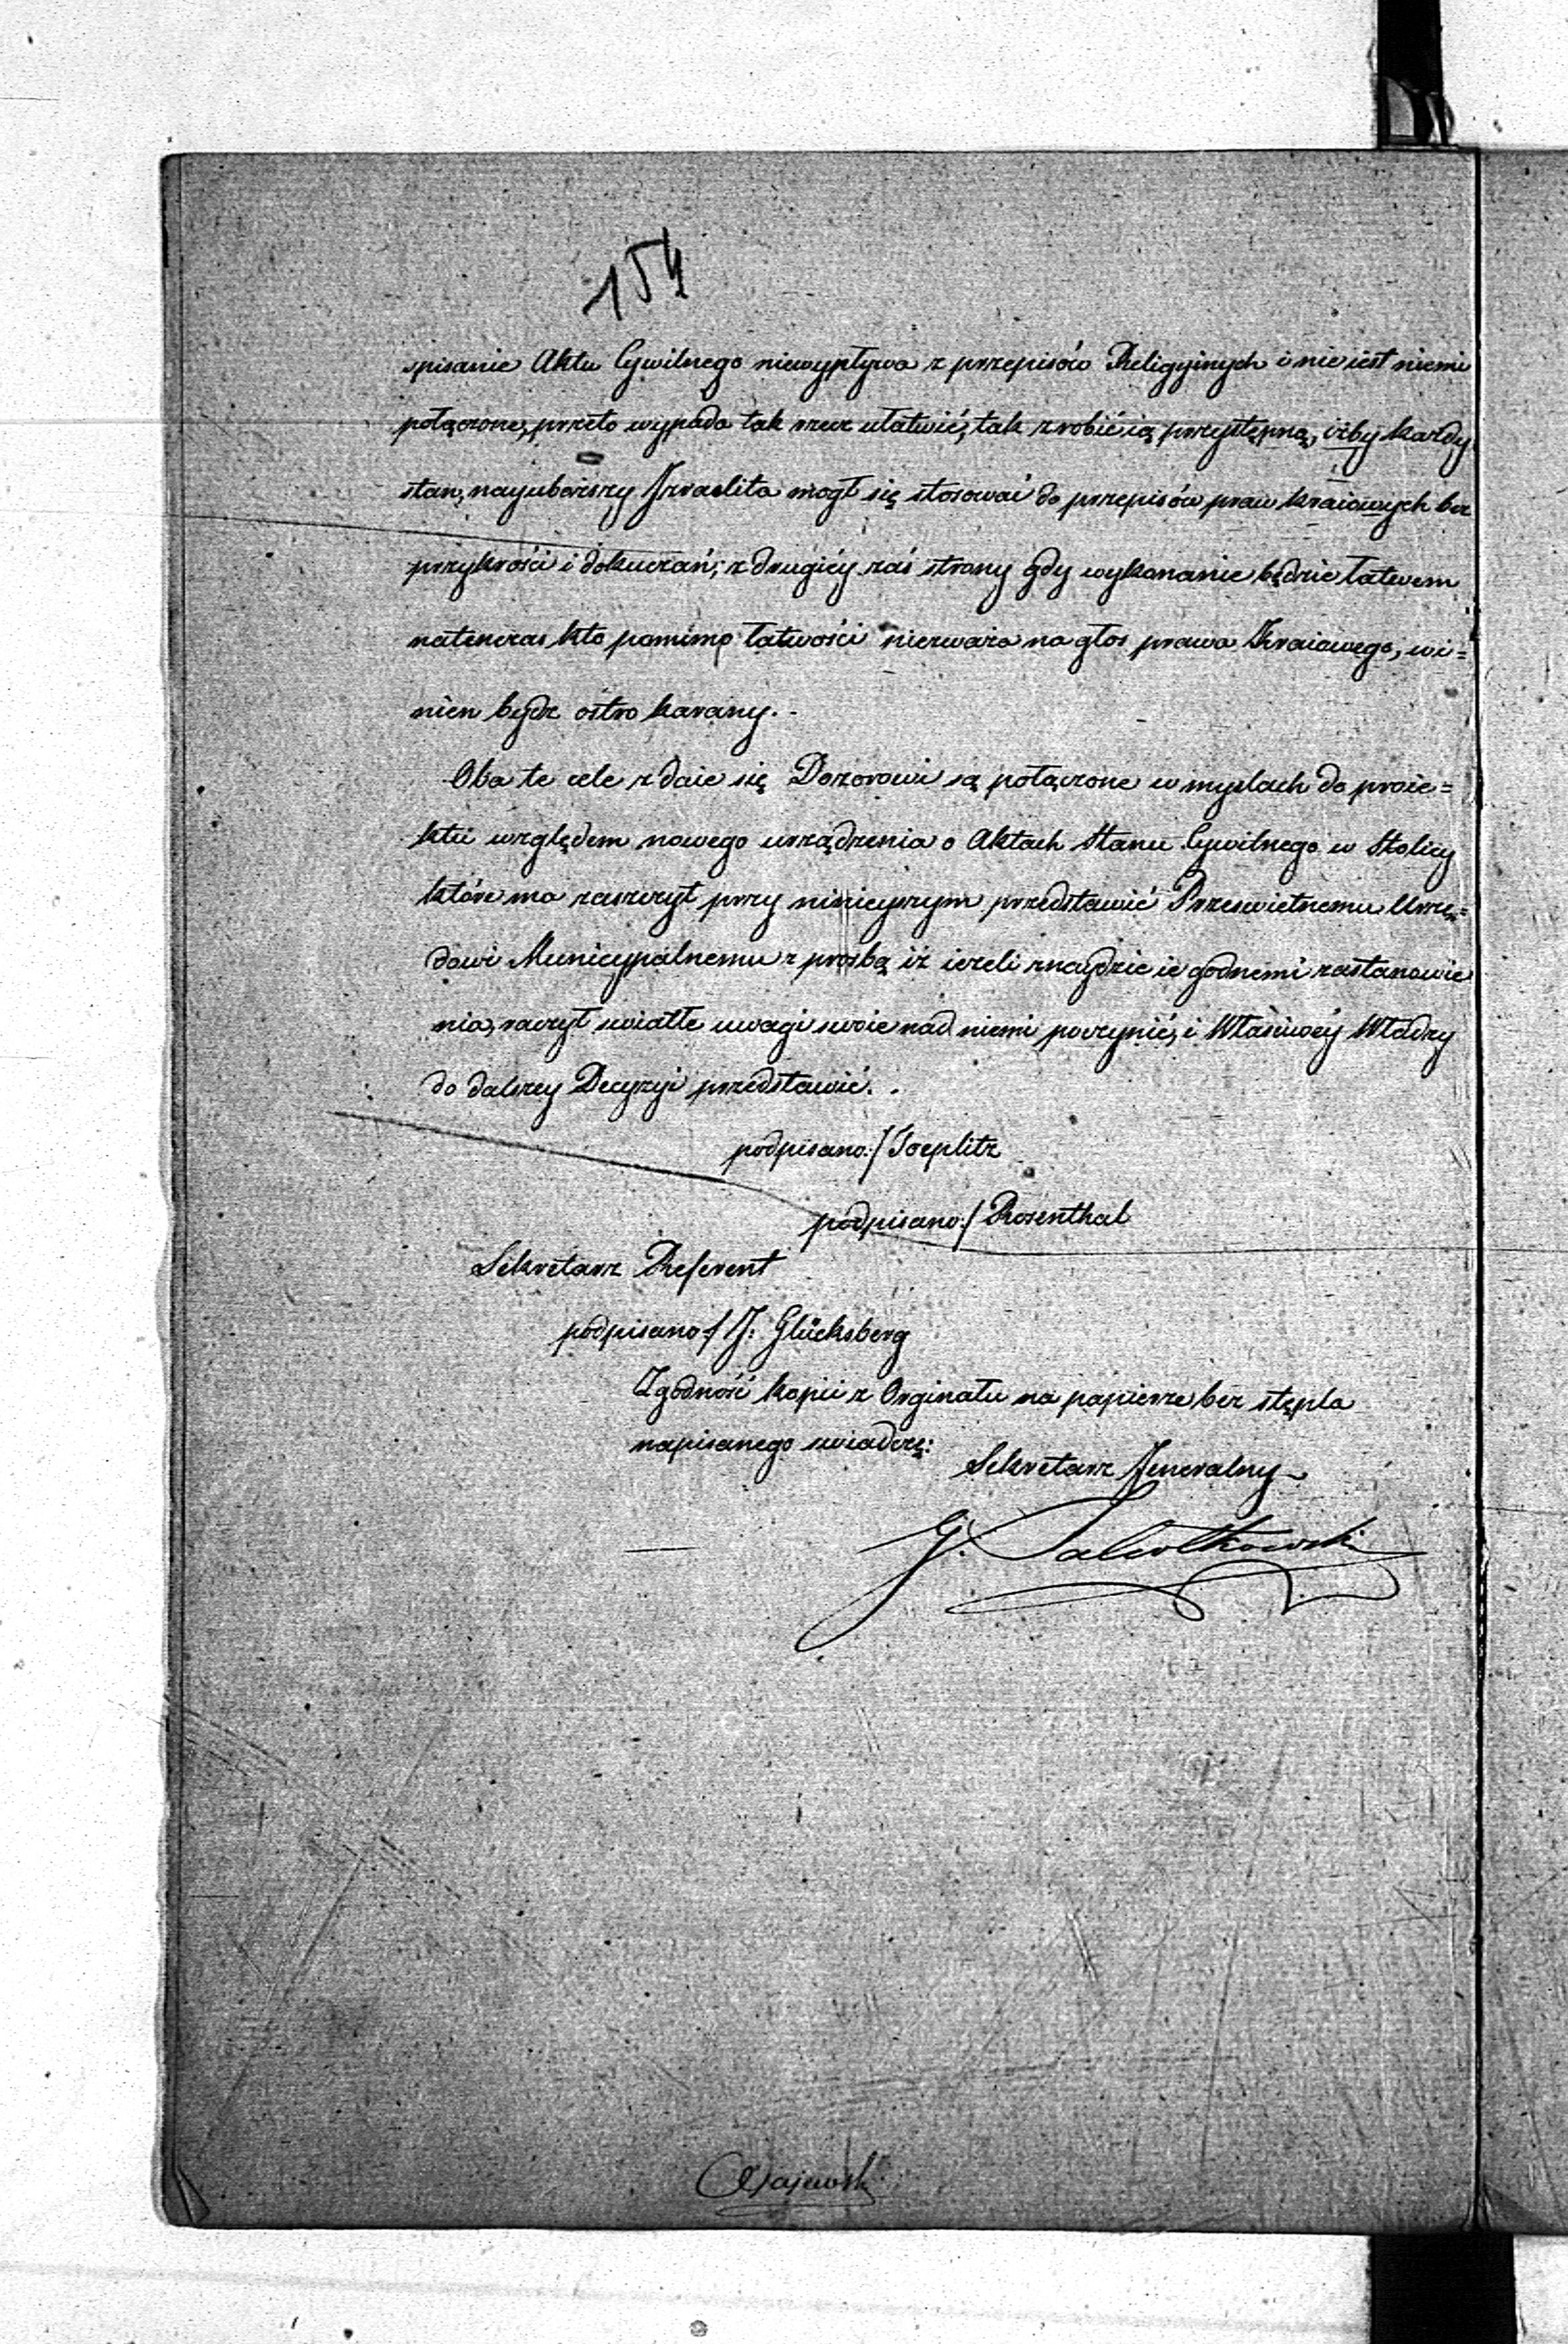 154
spisanie Aktu Cywilnego niewypływa z przepisów Religyinych i nie iest niemi
połączone, przeto wypada tak rzecz ułatwić, tak zrobić ią przystępną, iżby każdy
stan, nayuboższy Izraelita mogł się stosować do przepisów praw kraiowych bez
przykrości i dokuczań; z drugiéy zaś strony gdy wykonanie będzie łatwem
natenczas kto pomimo łatwości niezważa na głos prawa Kraiowego, wi=
nien będz ostro karany.-
Oba te cele zdaie się Dozorowi są połączone w myslach do proie=
ktu względem nowego urządzenia o Aktach Stanu Cywilnego w Stolicy
które ma zaszczyt przy ninieyszym przedstawić Prześwietnemu Urzę=
dowi Municypalnemu z prośbą iż ieżeli znaydzie ie godnemi zastanowie
nia, raczył swiatłe uwagi swoie nad niemi poczynić, i Właściwéy Władzy
do dalszey Decyzyi przedstawić.
podpisano:/ Toeplitz
podpisano:/ Rosenthal
Sekretarz Referent
podpisano:/ J: Glücksberg
Zgodność kopii z Orginału na papierze bez stępla
napisanego swiadczę:
Sekretarz Jeneralny
G.